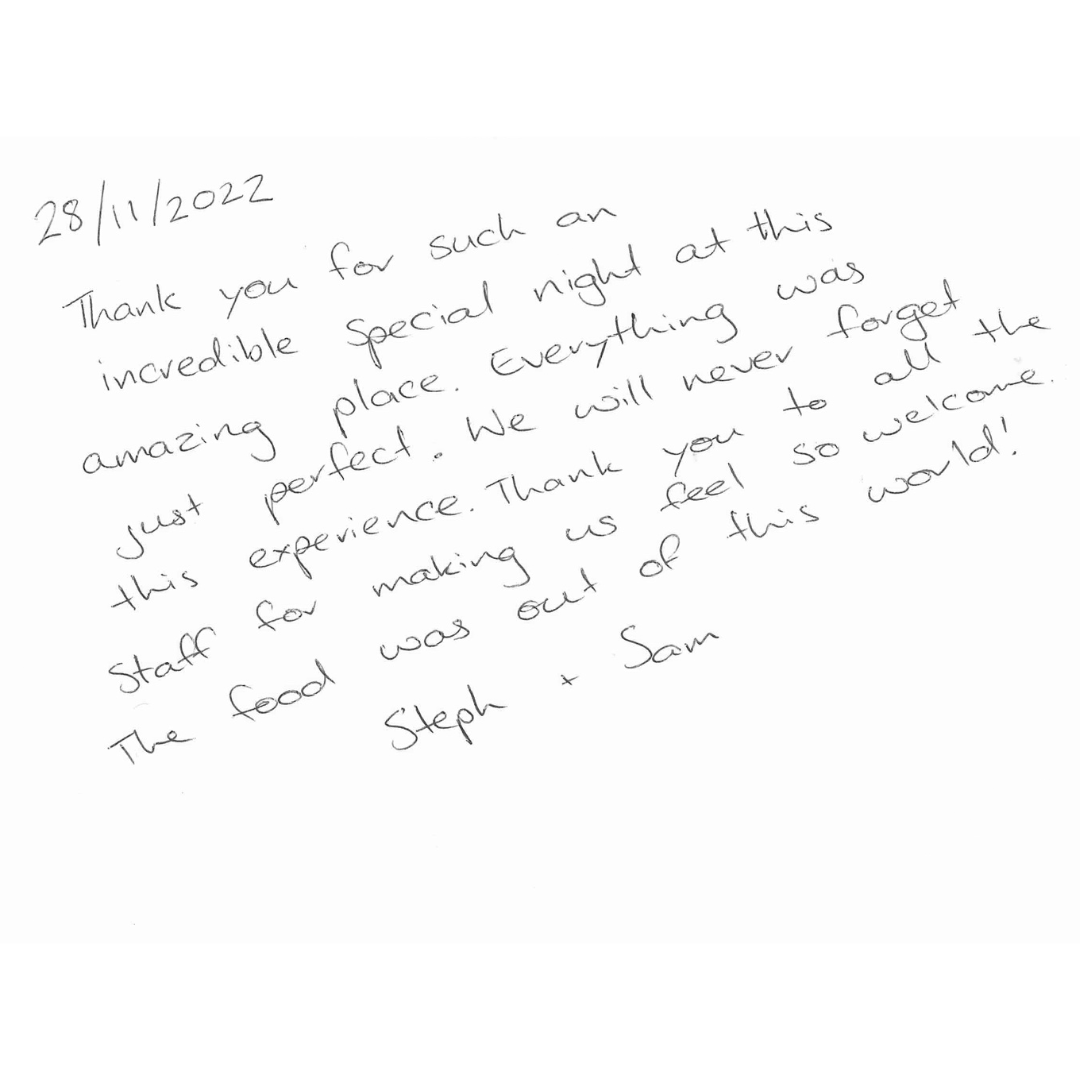 28/11/2022
Thank you for such an
incredible special night at this
amazing place. Everything was
just perfect. We will never forget
this experience. Thank you to all the
staff for making us feel so welcome.
The food was out of this world!
Steph + Sam